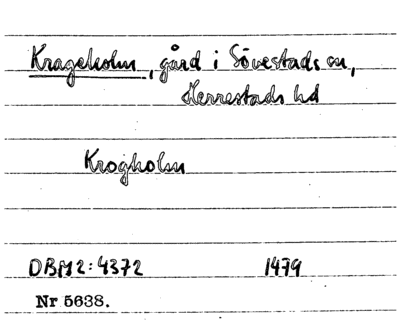 Krageholm, gård i Sövestads sn,
Herrestads hd
Krogholm
DBM2:4372 1479
Nr 5638.